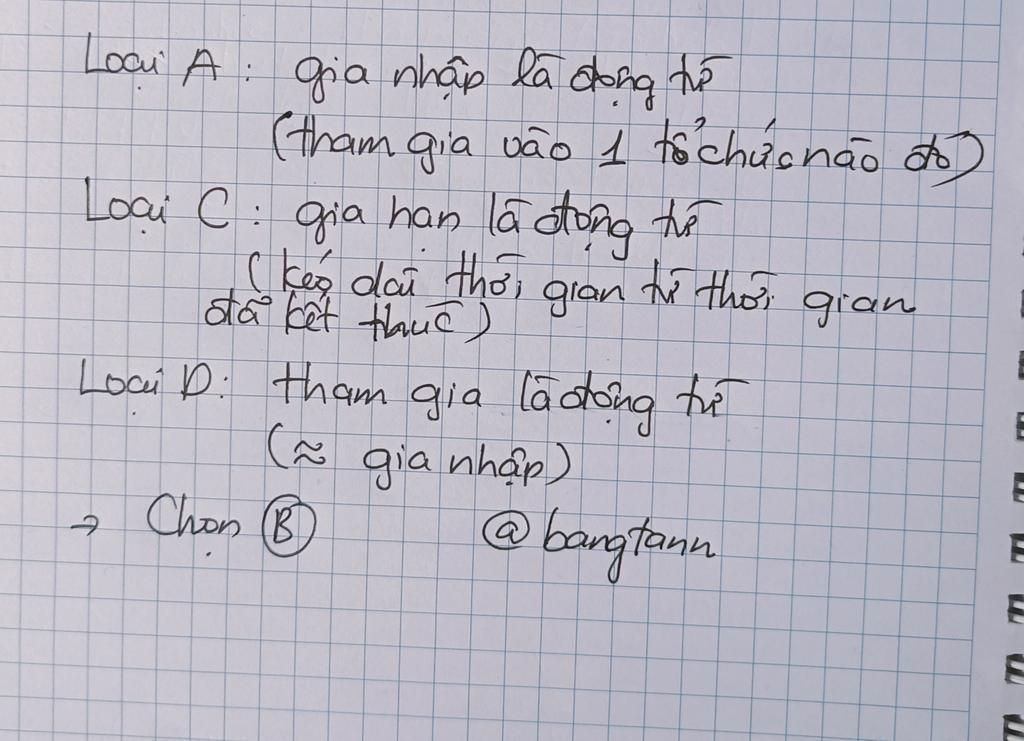 Loại A : gia nhập là động từ
(tham gia vào 1 tổ chức nào đó)
Loại C : gia hạn là động từ
(kéo dài thời gian từ thời gian
đã kết thúc)
Loại D : tham gia là động từ
(≈ gia nhập)
→ Chọn B @bangtann